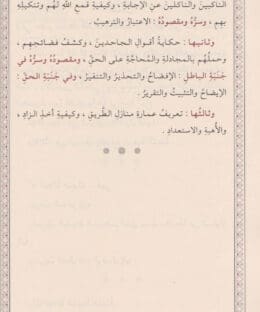 الناكبين والناكلين عن الإجابة ، وكيفية قمع الله لهم وتنكيله
بهم ، وسرُّهُ ومقصودُهُ : الاعتبارُ والترهيبُ .
وثانيها : حكايةُ أقوالِ الجاحدين ، وكشفُ فضائحِهم ،
وجهلُهم بالمجادلةِ والمُحاجَّةِ على الحقِّ ، ومقصودُهُ وسرُّهُ في
جَنَبَةِ الباطلِ : الإفضاحُ والتحذيرُ والتنفيرُ ، وفي جَنَبَةِ الحقِّ :
الإيضاحُ والتثبيتُ والتقريرُ .
وثالثُها : تعريفُ عمارةِ منازلِ الطَّريقِ ، وكيفيةِ أخذِ الزادِ ،
والأُهبةِ والاستعدادِ .